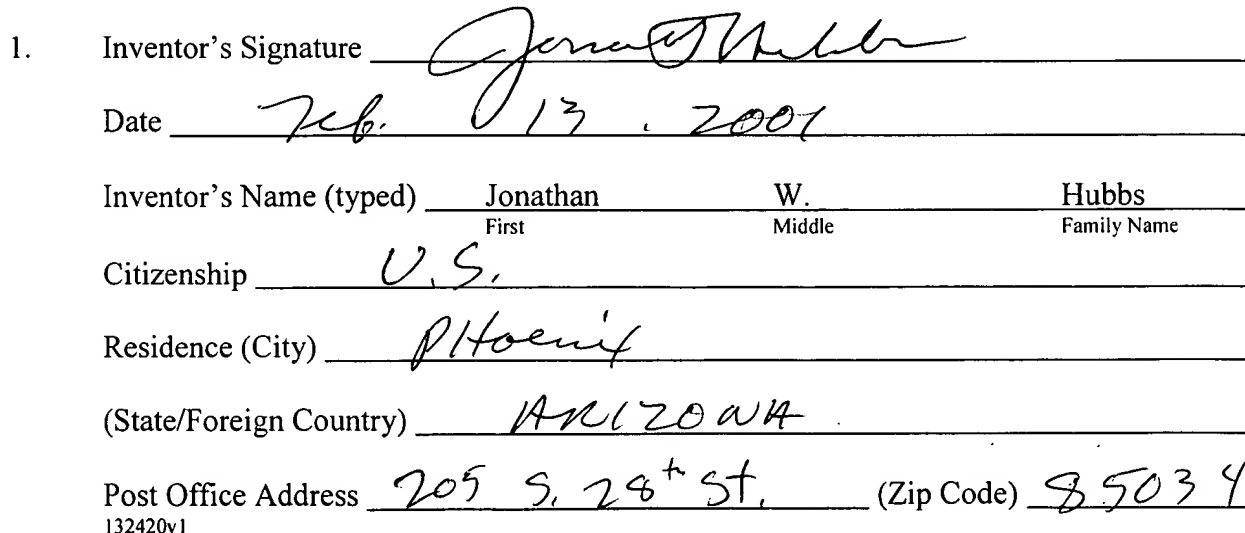 1. Inventor's Signature Jonathan Hubbs
Date Feb. 13, 2001
Inventor's Name (typed) Jonathan W. Hubbs
First Middle Family Name
Citizenship U.S.
Residence (City) PHoenix
(State/Foreign Country) ARIZONA
Post Office Address 205 S. 28th St. (Zip Code) 85034
132420v1